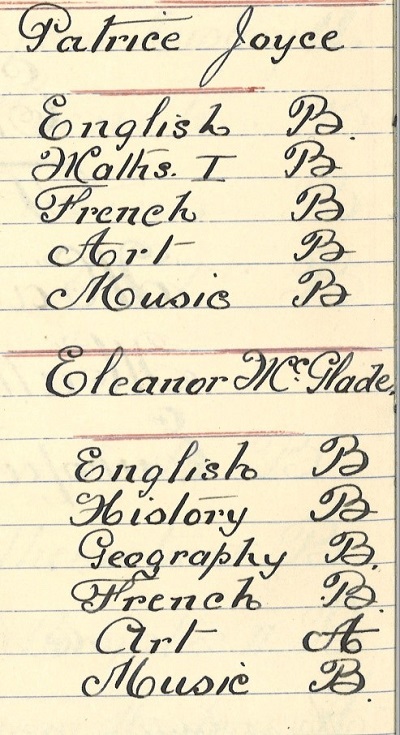 Patrice Joyce
English B.
Maths. I B
French B
Art B
Music B
Eleanor McGlade.
English B
History B
Geography B.
French B.
Art A
Music B.